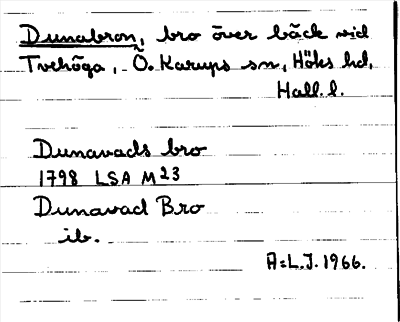 Dunabron, bro över bäck vid
Tvehöga, Ö. Karups sn, Höks hd,
Hall. l.
Dunavads bro
1798 LSA M23
Dunavad Bro
ib.
A=L.J. 1966.